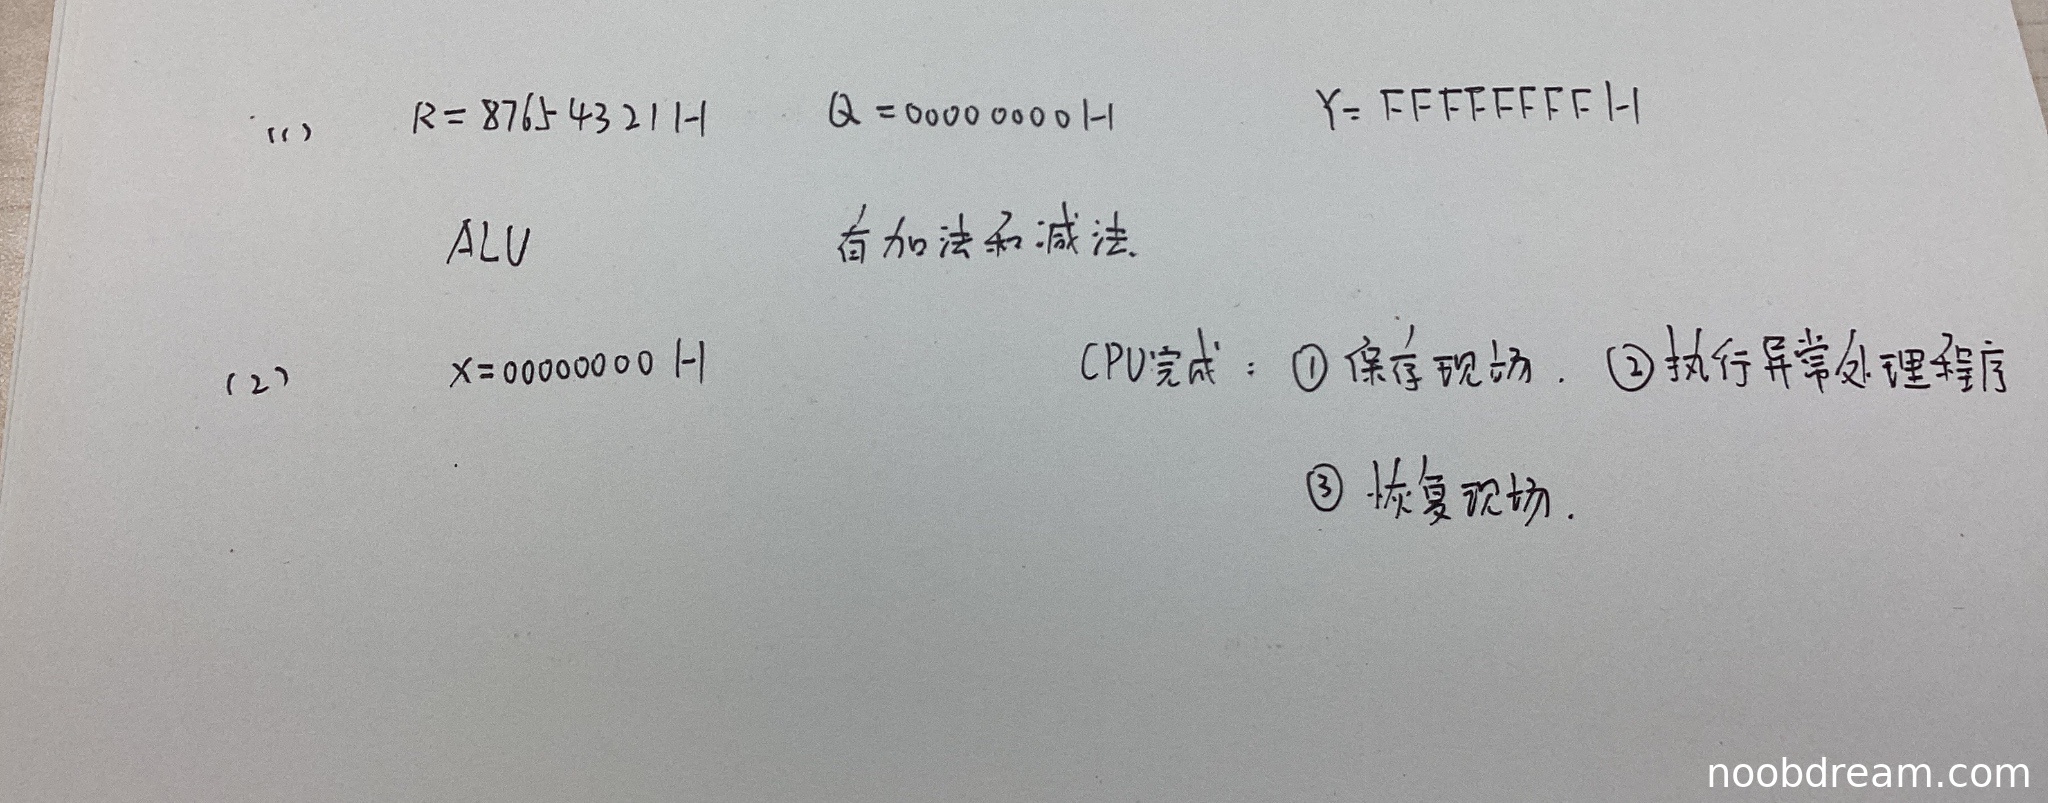 (1) R = 87654321H Q = 00000000H Y = FFFFFFFFH
ALU 有加法和减法.
(2) X = 00000000H CPU完成: ① 保存现场. ② 执行异常处理程序
③ 恢复现场.
noobdream.com